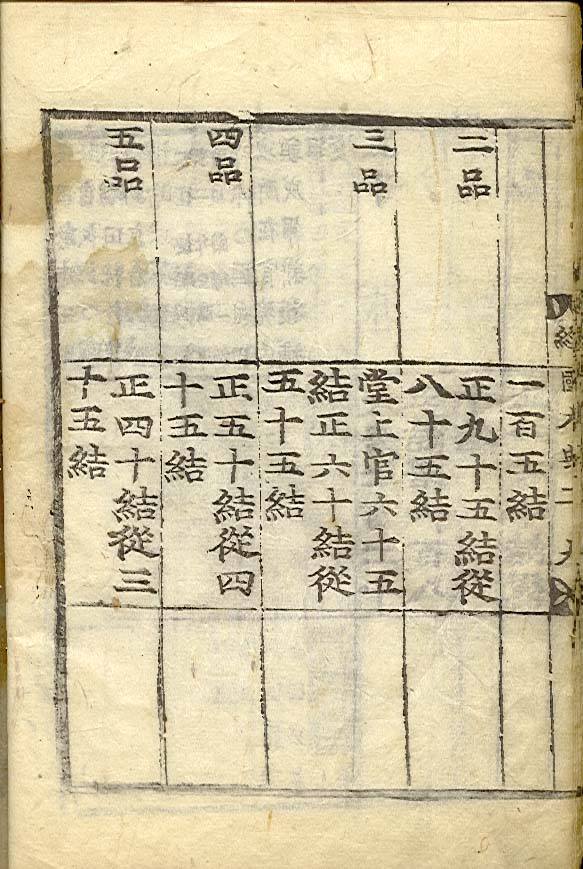 經國大典二
一百五結
二品
正九十五結從
八十五結
三品
堂上官六十五
結正六十結從
五十五結
四品
正五十結從四
十五結
五品
正四十結從三
十五結